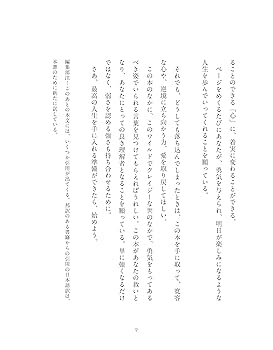 ることのできる「心」に、着実に変わることができる。
ページをめくるたびにあなたが、勇気を与えられ、明日が楽しみになるような
人生を歩んでいってくれることを願っている。
それでも、どうしても落ち込んでしまったときは、この本を手に取って、寛容
な心や、逆境に立ち向かう力、愛を取り戻してほしい。
この本のなかに、このワイルドでクレイジーな世のなかで、勇気をもってある
べき姿でいられる言葉を見つけてもらえればうれしい。この本があなたの救いと
なり、あなたにとっての良き理解者となることを願っている。単に強くなるだけ
ではなく、弱さを認める強さも持ち合わせるために。
さあ、最高の人生を手に入れる準備ができたら、始めよう。
編集部注：このあとの本文では、いくつか引用が出てくるが、
本書のために新たに訳している。
7